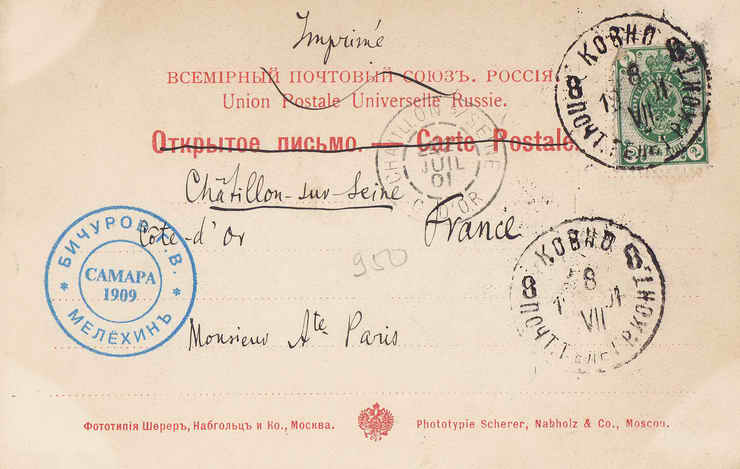 Imprimé
ВСЕМІРНЫЙ ПОЧТОВЫЙ СОЮЗЪ. РОССІЯ
Union Postale Universelle Russie.
Открытое письмо. — Carte Postale.
Châtillon-sur-Seine
Côte-d'Or
France
950
Monsieur Ate Paris
КОВНО
8
8
VII
ПОЧТ. ТЕЛЕГР. КОНТ.
2
2
CHATILLON S/ SEINE
JUIL
01
C. D'OR
КОВНО
8
8
VII
ПОЧТ. ТЕЛЕГР. КОНТ.
БИЧУРОВ В.
САМАРА
1909
МЕЛЁХИНЪ
Фототипія Шереръ, Набгольцъ и Ко., Москва.
Phototypie Scherer, Nabholz & Co., Moscou.